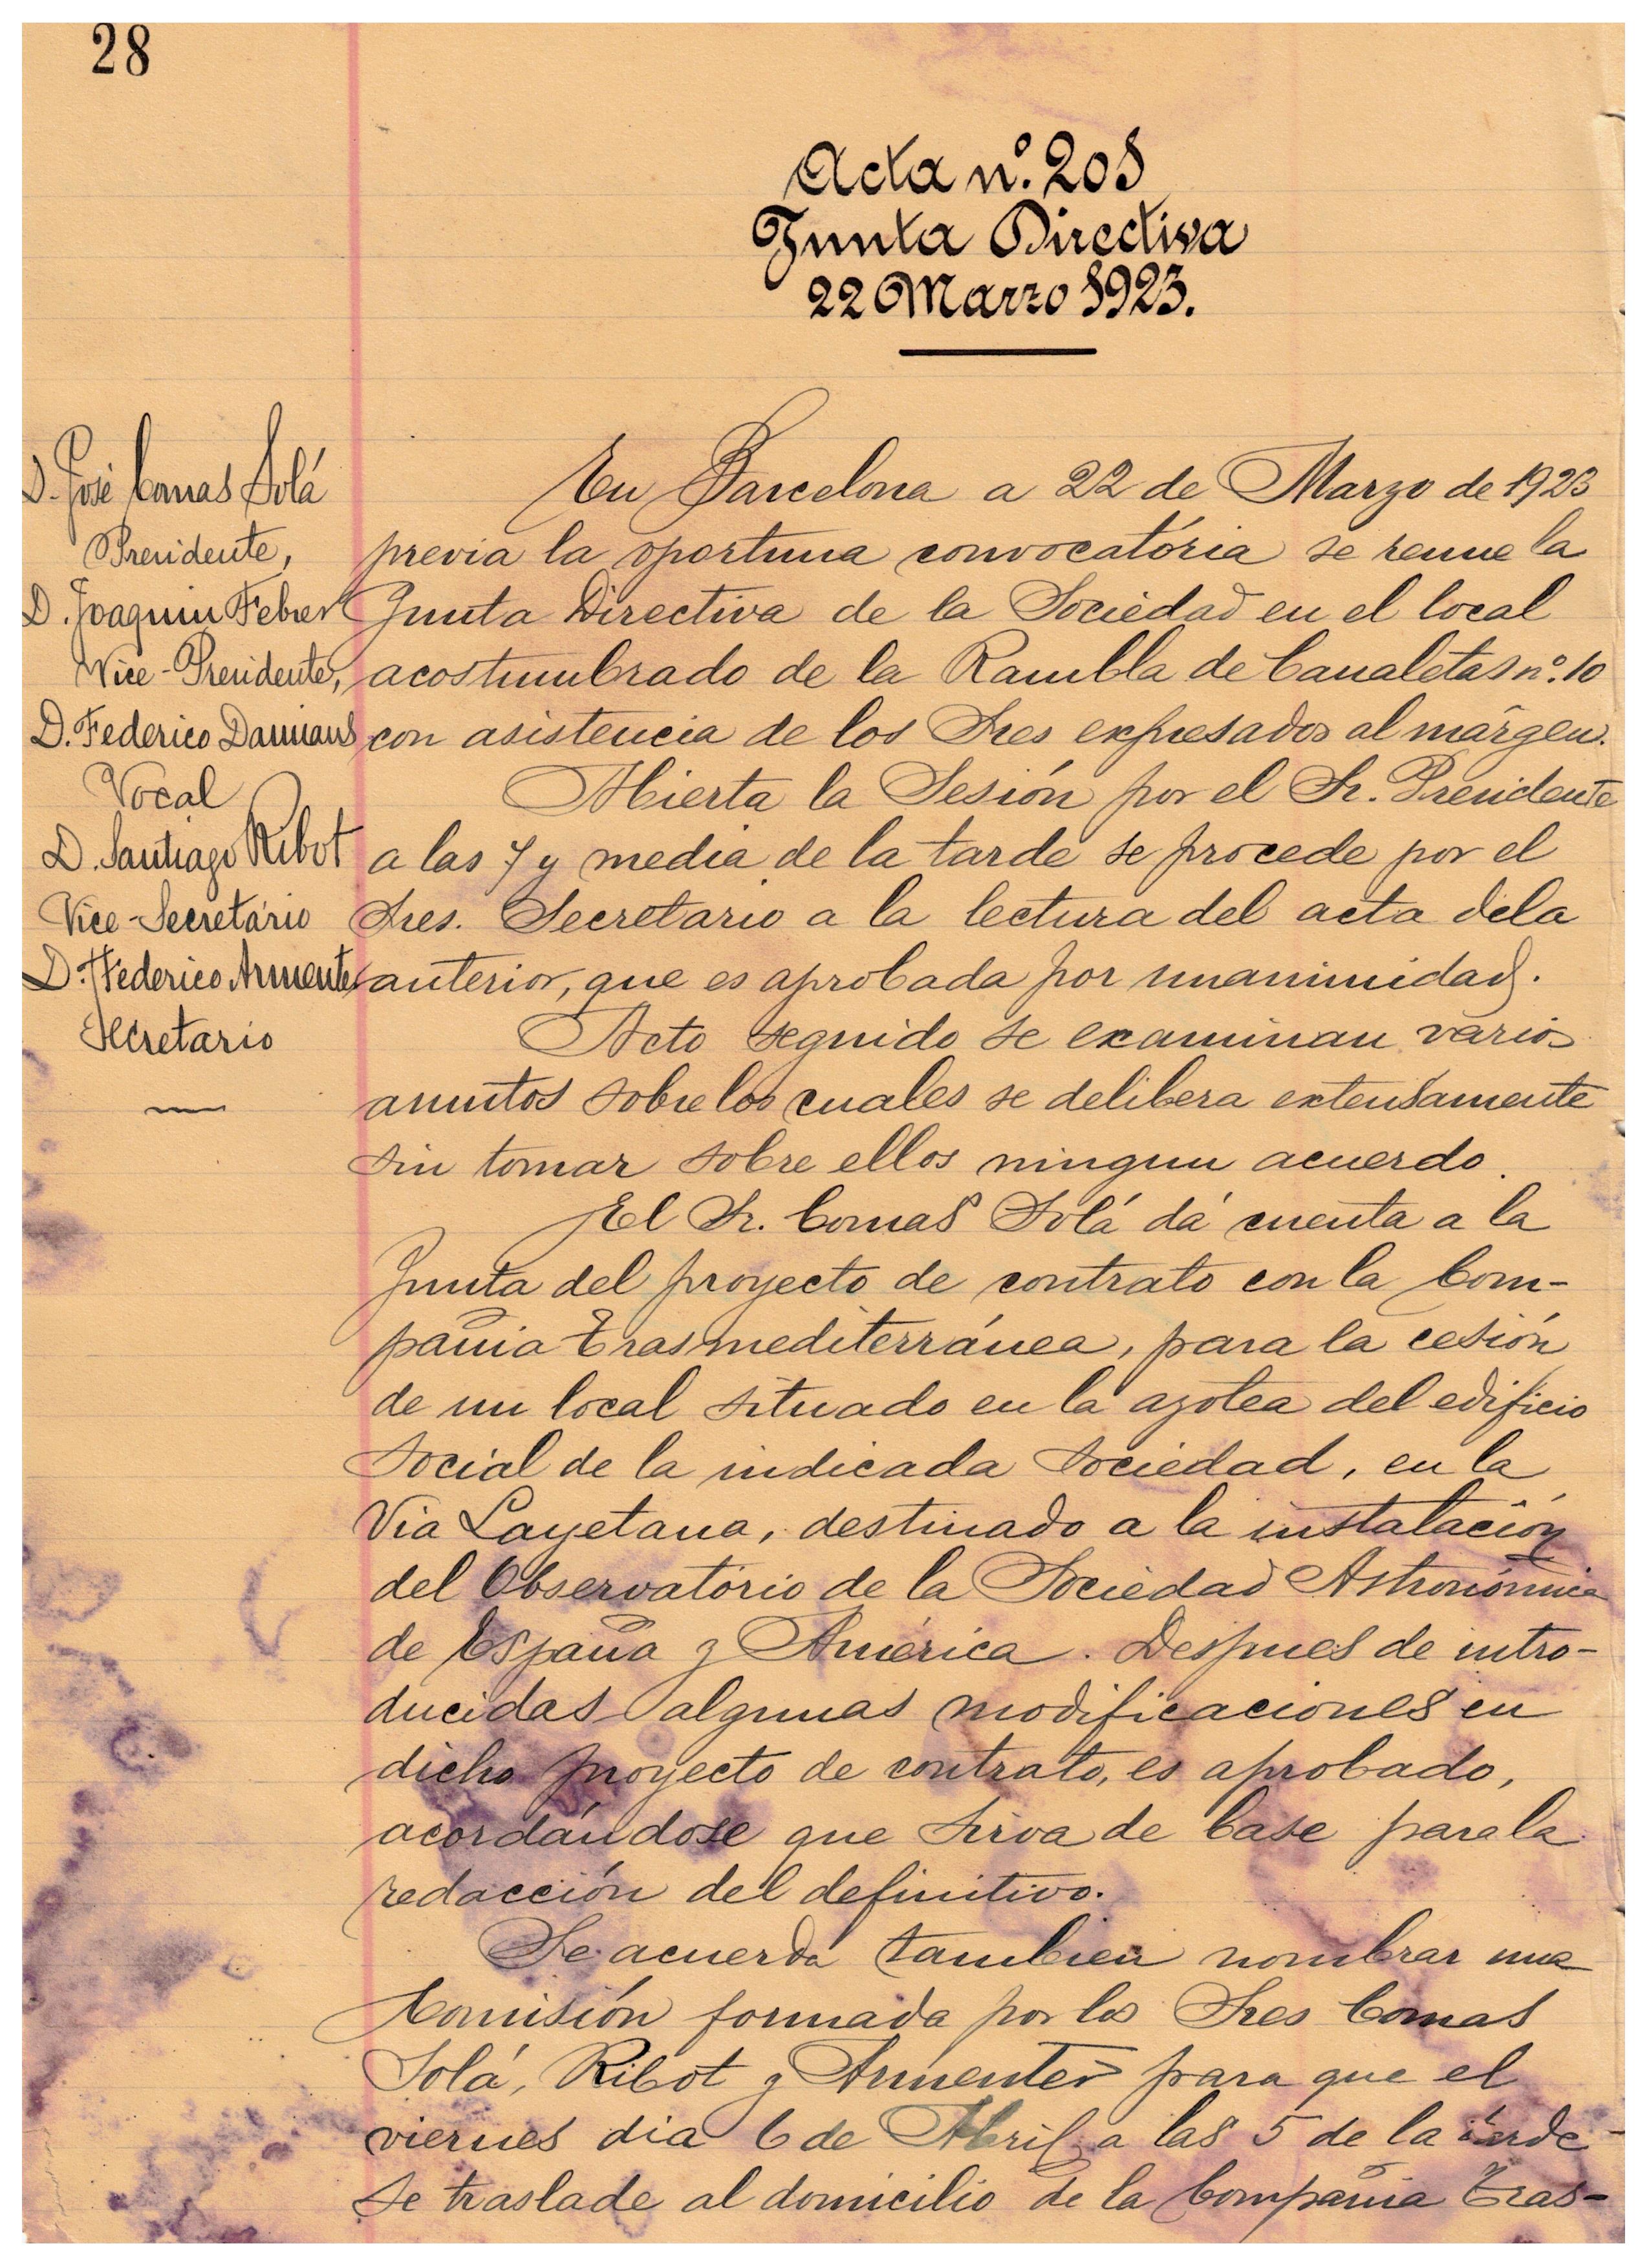 28
Acta nº. 201
Junta Directiva
22 Marzo 1923.
D. José Comas Solá
Presidente,
D. Joaquin Febrer
Vice-Presidente,
D. Federico Damians
Vocal
D. Santiago Ribot
Vice-Secretário
D. Federico Armenter
Secretario
En Barcelona a 22 de Marzo de 1923
previa la oportuna convocatória se reune la
Junta Directiva de la Sociedad en el local
acostumbrado de la Rambla de Canaletas nº. 10
con asistencia de los Sres expresados al márgen.
Abierta la Sesión por el Sr. Presidente
a las 7 y media de la tarde se procede por el
Sres. Secretario a la lectura del acta de la
anterior, que es aprobada por unanimidad.
Acto seguido se examinan varios
asuntos sobre los cuales se delibera extensamente
sin tomar sobre ellos ningun acuerdo.
El Sr. Comas Solá dá cuenta a la
Junta del proyecto de contrato con la Com-
pañia Trasmediterránea, para la cesión
de un local situado en la azotea del edificio
social de la indicada sociedad, en la
Via Layetana, destinado a la instalación
del Observatório de la Sociedad Astronómica
de España y América. Despues de intro-
ducidas algunas modificaciones en
dicho proyecto de contrato, es aprobado,
acordándose que sirva de base para la
redacción del definitivo.
Se acuerda tambien nombrar una
Comisión formada por los Sres Comas
Solá, Ribot y Armenter para que el
viernes dia 6 de Abril a las 5 de la tarde
se traslade al domicilio de la Compañia Tras-